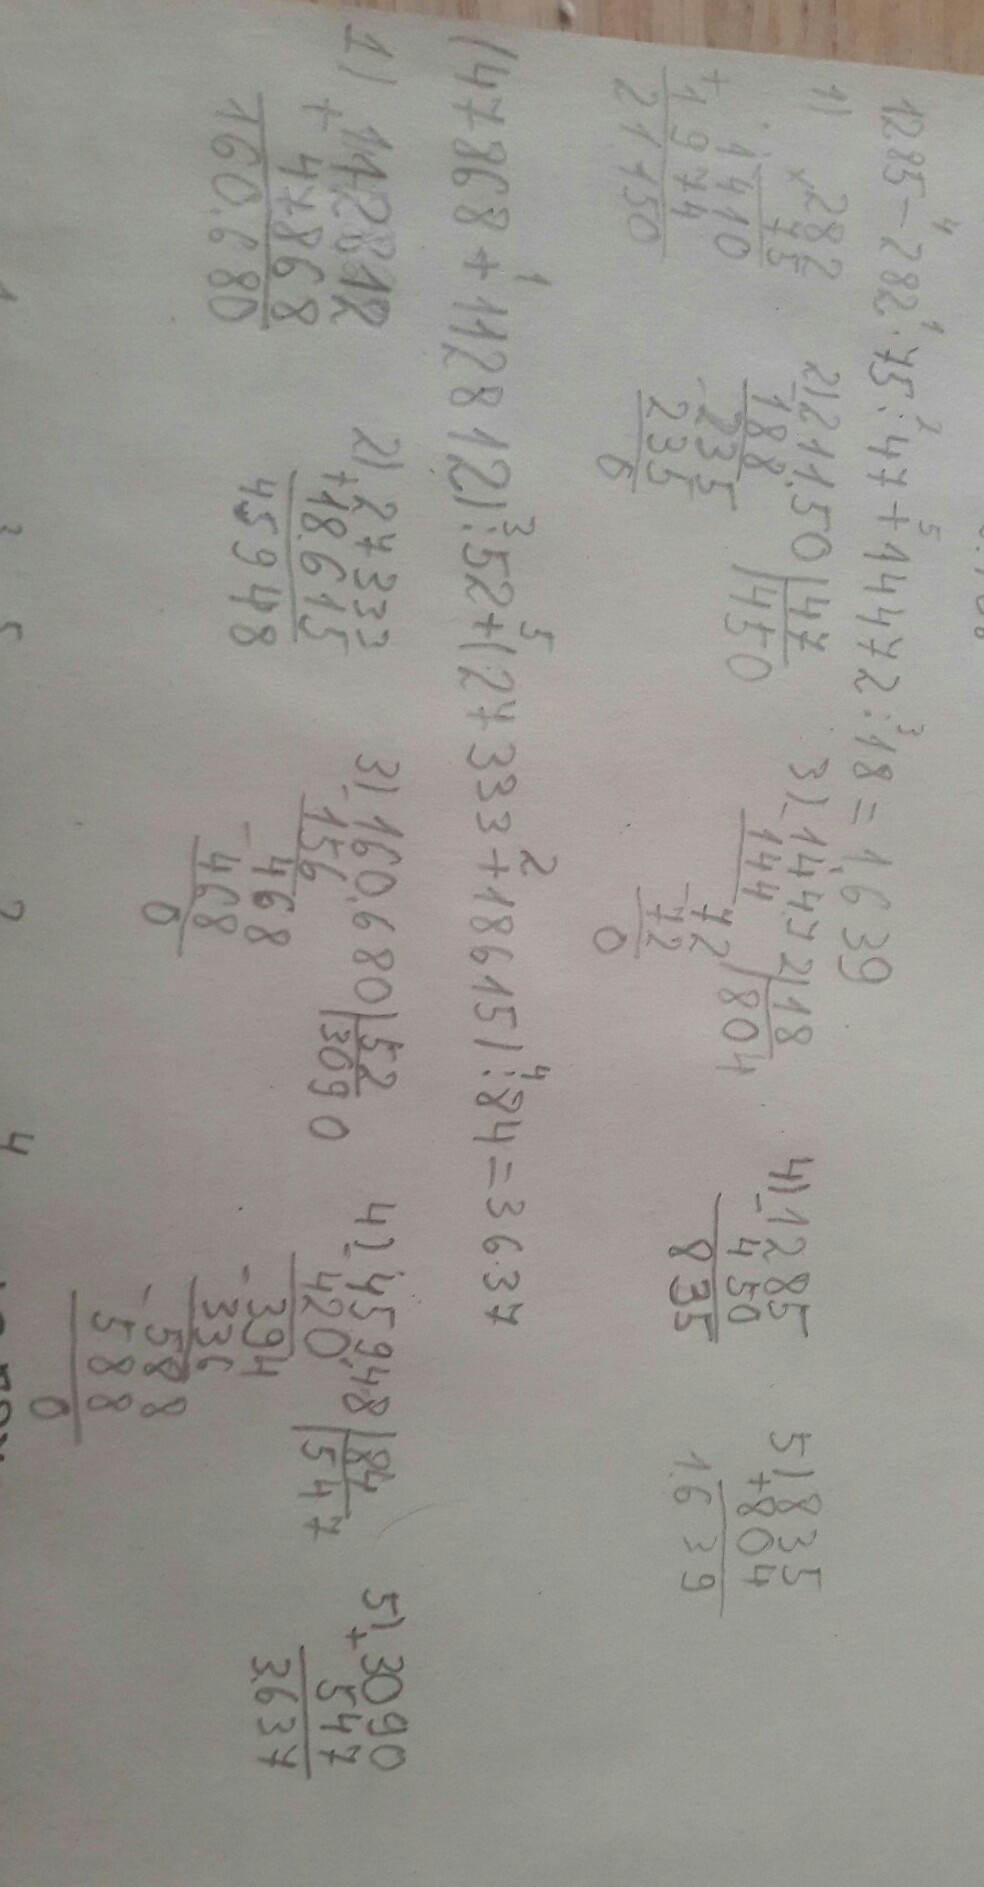 1285-282·75:47+14472:18=1639
4 1 2 5 3
1) ×282
75
1410
+1974
21150
2) 21150|47
-188 |450
-235
235
0
3) -14472|18
144 |804
-72
72
0
4) -1285
450
835
5) +835
804
1639
(47868+112812):52+(27333+18615):84=3637
1 3 5 2 4
1) 112812
+ 47868
160.680
2) 27333
+18615
45948
3) -160.680|52
156 |3090
-468
468
0
4) -45948|84
420 |547
-394
336
-588
588
0
5) +3090
547
3637